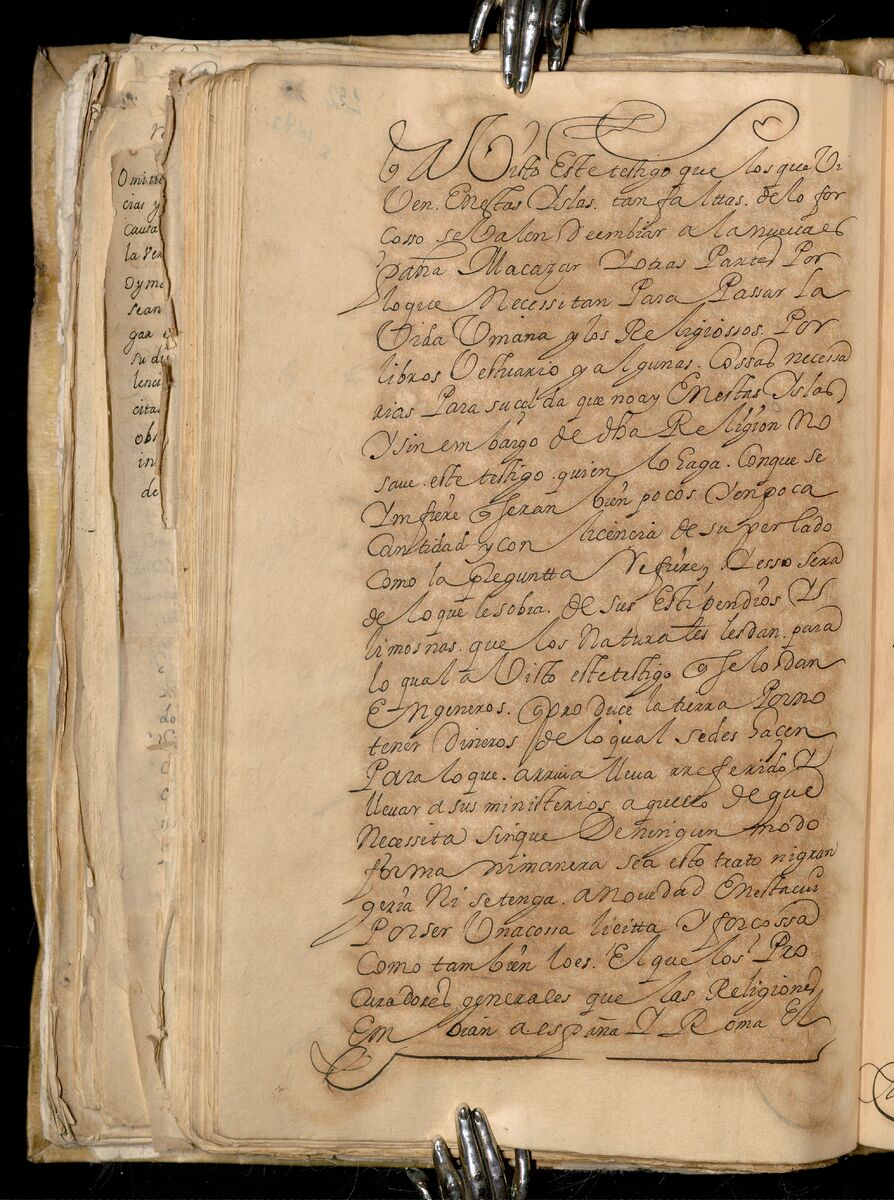 q A Visto este testigo que los que Vi
Ven. Enestas Yslas. tan faltttas. de lo for
cosso se Valen deembiar a la nueua es
paña Macazar Y otras Partes Por
lo que Necessitan Para Passar la
Vida Vmana y los Religiossos. Por
libros Vestuario y algunas. cossas necessa
rias Para su celda que no ay Enestas Yslas
Y sin embargo de dha Religion No
saue. este testigo. quien lo haga. Conque se
Ynfiere q seran bien pocos Y en poca
Cantidad y con licencia de su perlado
Como la pregunta Refiere, Y esso sera
de lo que le sobra. de sus Estipendios Y
limosnas. que los Naturales les dan. para
lo qual a Visto este testigo q se los dan
En generos. q produce la tierra Por no
tener Dineros de lo qual se deshacen
Para lo que. arriua lleua rreferido Y
lleuar a sus ministerios aquello de que
Necessita sin que De ningun modo
forma ni manera sea esto trato ni gran
geria Ni se tenga. a Nouedad Enesta ciu
Por ser Vna cossa licitta Y forcossa
Como tambien lo es. El que los Pro
curadores generales que las Religiones
Em bian a españa Y Roma El
Omitie
cias y
causa
la Ver
Dyma
sean
gar
su di
lence
citas
obs
in
de